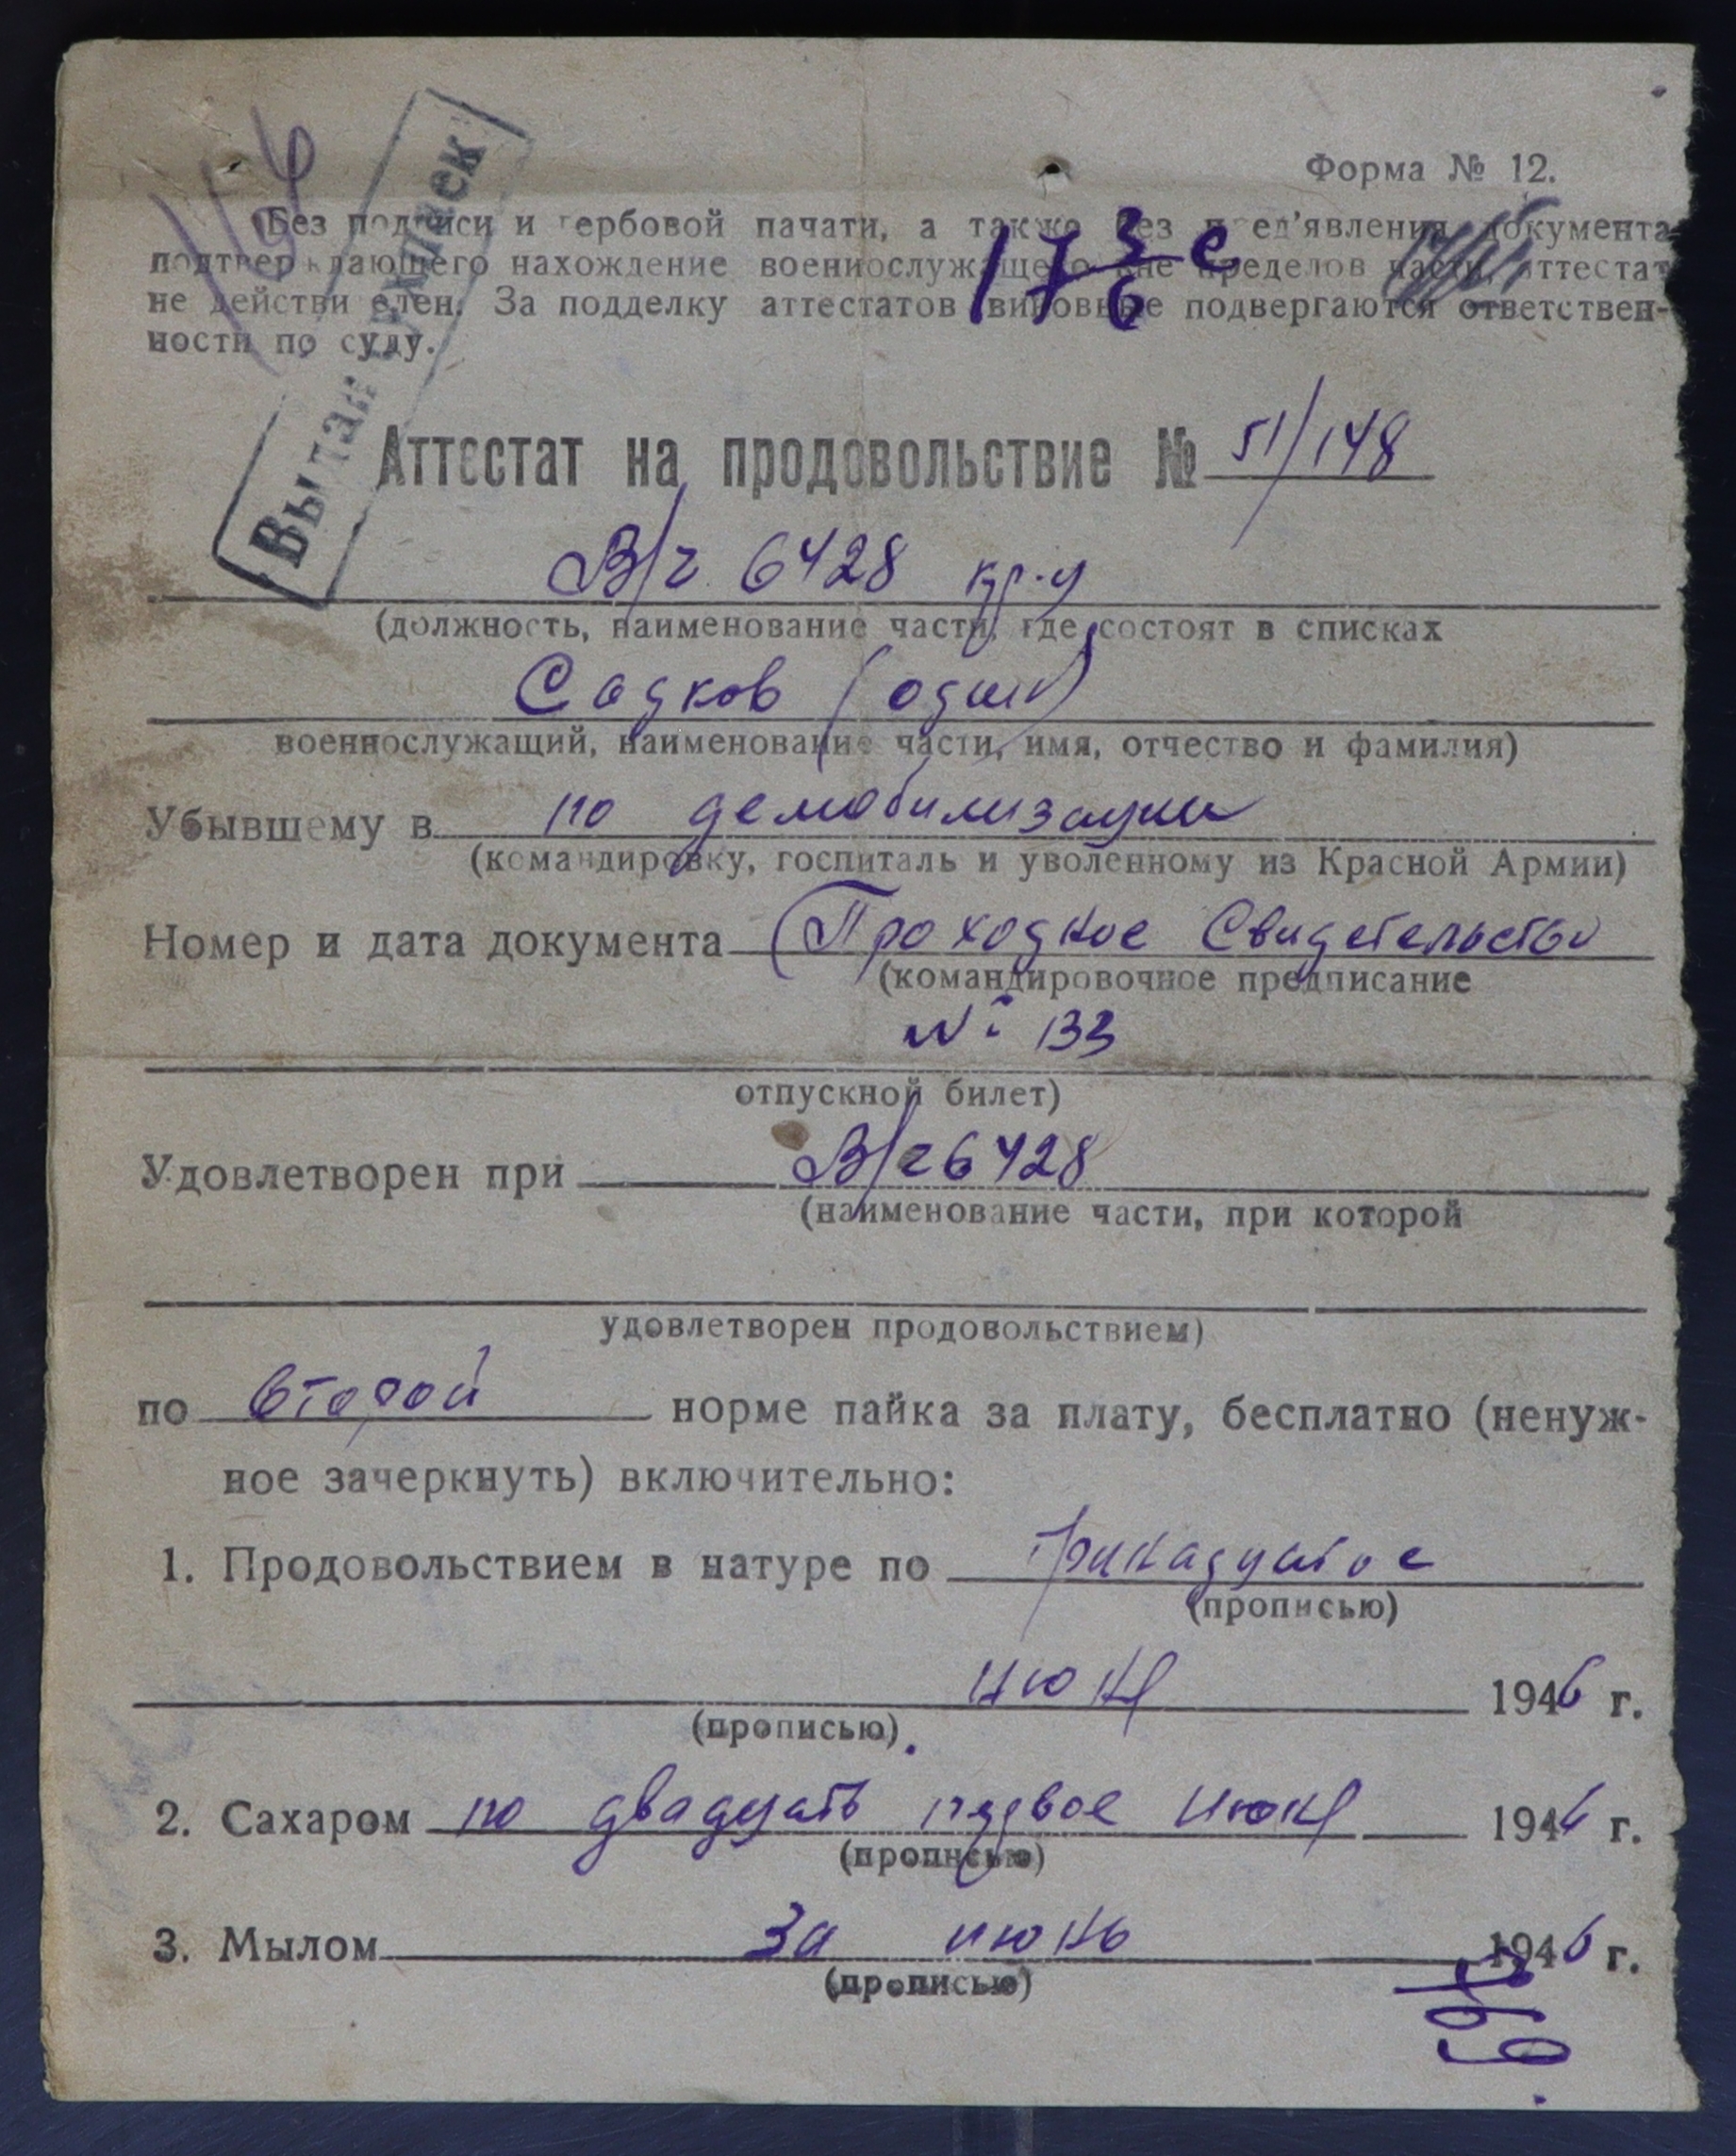 Форма № 12.
Без подписи и гербовой пачати, а также без пред'явления документа
подтверждающего нахождение военнослужащего вне пределов части, аттестат
не действителен. За подделку аттестатов виновные подвергаются ответствен-
ности по суду.
17 3/6 е
Аттестат на продовольствие № 51/148
В/ч 6428 кр-ц
(должность, наименование части, где состоят в списках
Садков (один)
военнослужащий, наименование части, имя, отчество и фамилия)
Убывшему в по демобилизации
(командировку, госпиталь и уволенному из Красной Армии)
Номер и дата документа (Проходное Свидетельство
(командировочное предписание
№ 133
отпускной билет)
Удовлетворен при В/ч 6428
(наименование части, при которой
удовлетворен продовольствием)
по второй норме пайка за плату, бесплатно (ненуж-
ное зачеркнуть) включительно:
1. Продовольствием в натуре по тринадцатое
(прописью)
июня 1946 г.
(прописью)
2. Сахаром по двадцать первое июня 1946 г.
(прописью)
3. Мылом за июнь 1946 г.
(прописью)